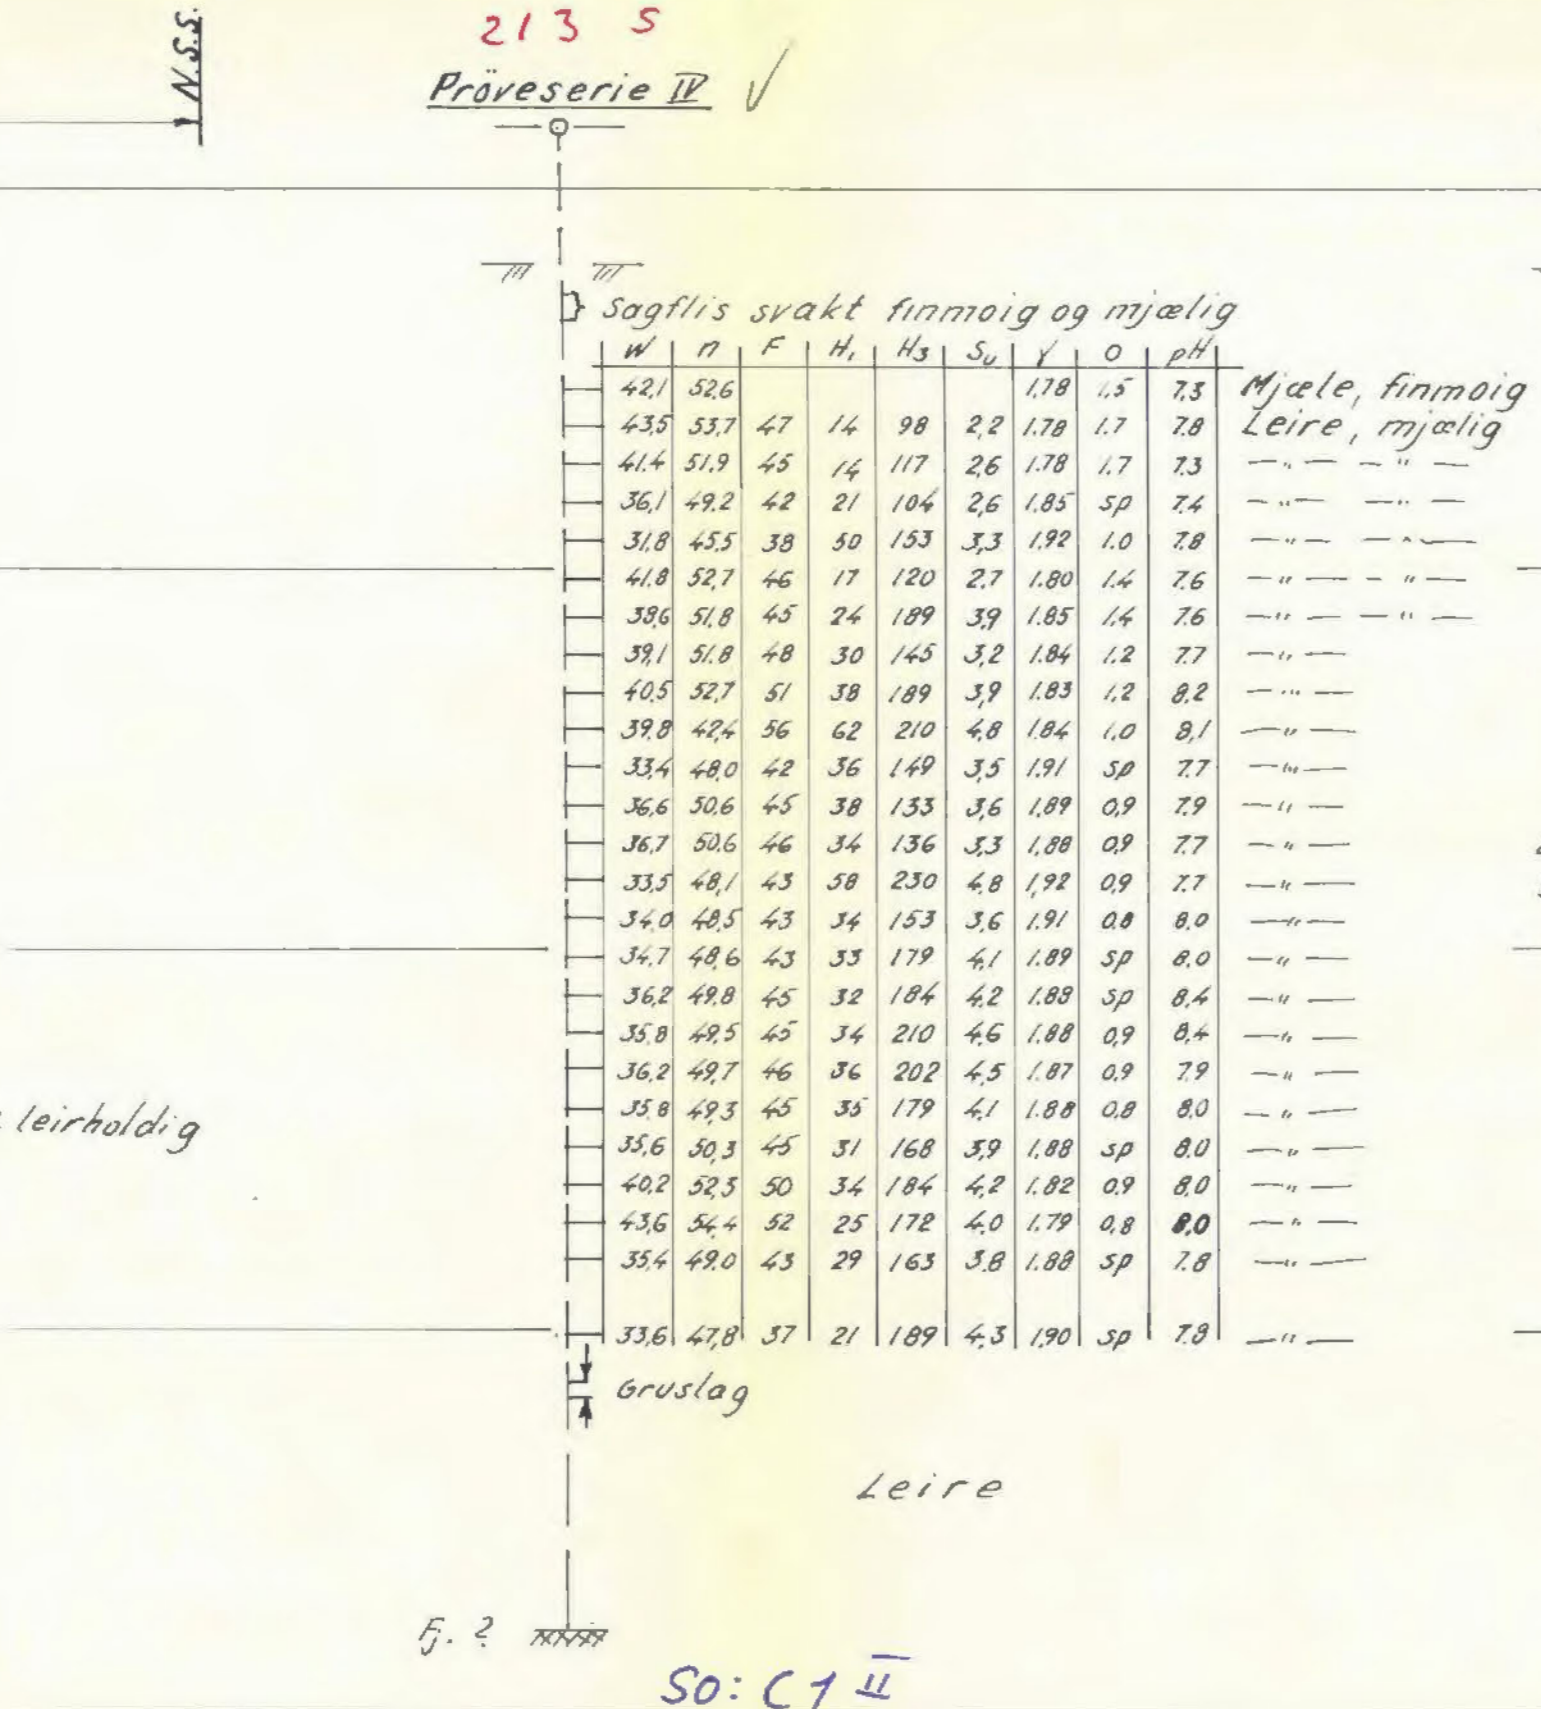 N.S.S.
213 S
Pröveserie IV √
} Sagflis svakt finmoig og mjælig
W n F H₁ H₃ Su γ O pH
42,1 52,6 1,78 1,5 7.3 Mjæle, finmoig
43,5 53,7 47 14 98 2,2 1.78 1.7 7.8 Leire, mjælig
41.4 51,9 45 14 117 2,6 1.78 1.7 7.3 —"— —"—
36,1 49.2 42 21 104 2,6 1.85 sp 7.4 —"— —"—
31,8 45,5 38 50 153 3,3 1,92 1.0 7.8 —"— —"—
41,8 52,7 46 17 120 2.7 1.80 1.4 7.6 —"— —"—
38,6 51,8 45 24 189 3,9 1.85 1.4 7.6 —"— —"—
39,1 51.8 48 30 145 3,2 1.84 1.2 7.7 —"—
40,5 52,7 51 38 189 3,9 1.83 1,2 8.2 —"—
39.8 42,4 56 62 210 4,8 1.84 1,0 8,1 —"—
33,4 48,0 42 36 149 3,5 1.91 sp 7.7 —"—
36,6 50.6 45 38 133 3,6 1,89 0,9 7.9 —"—
36,7 50.6 46 34 136 3,3 1,88 0,9 7.7 —"—
33,5 48,1 43 58 230 4,8 1,92 0,9 7.7 —"—
34,0 48,5 43 34 153 3,6 1.91 0.8 8.0 —"—
34,7 48,6 43 33 179 4,1 1.89 sp 8.0 —"—
36,2 49,8 45 32 184 4.2 1.88 sp 8.4 —"—
35,8 49,5 45 34 210 4,6 1.88 0,9 8,4 —"—
36,2 49,7 46 36 202 4,5 1.87 0.9 7.9 —"—
35,8 49,3 45 35 179 4,1 1.88 0,8 8,0 —"—
leirholdig
35,6 50,3 45 31 168 3,9 1.88 sp 8.0 —"—
40,2 52,3 50 34 184 4,2 1.82 0.9 8,0 —"—
43,6 54,4 52 25 172 4,0 1.79 0,8 8,0 —"—
35,4 49.0 43 29 163 3.8 1.88 sp 7.8 —"—
33,6 47,8 37 21 189 4.3 1,90 sp 7.8 —"—
Gruslag
Leire
Fj. ?
SO: C 1 II